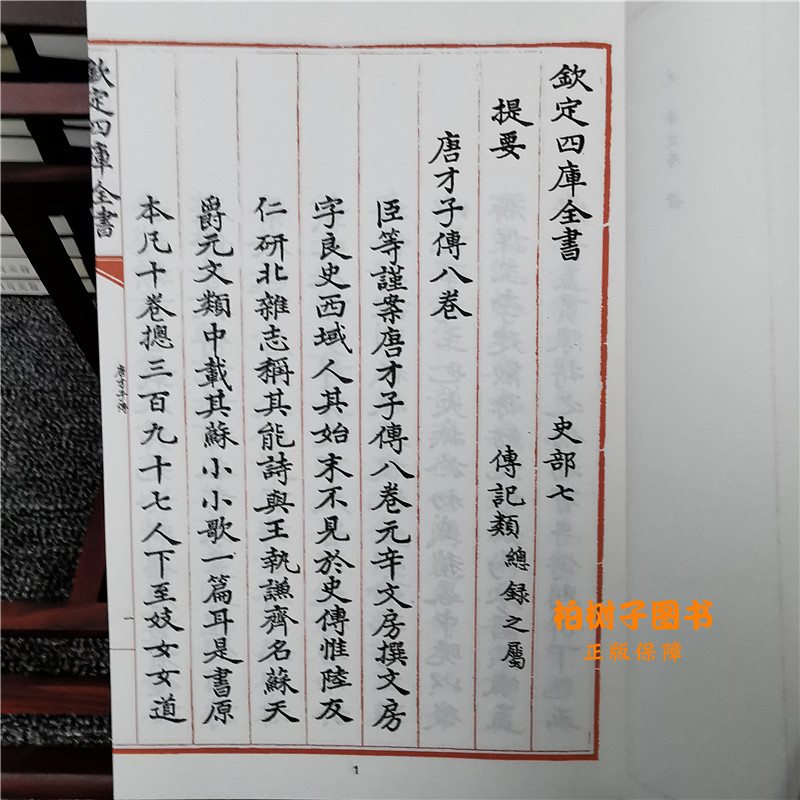 欽定四庫全書 史部七
提要 傳記類 總錄之屬
唐才子傳八卷
臣等謹案唐才子傳八卷元辛文房撰文房
字良史西域人其始末不見於史傳惟陸友
仁研北雜志稱其能詩與王執謙齊名蘇天
爵元文類中載其蘇小小歌一篇耳是書原
本凡十卷摠三百九十七人下至妓女女道
欽定四庫全書
唐才子傳
一
1
柏树子图书
正版保障